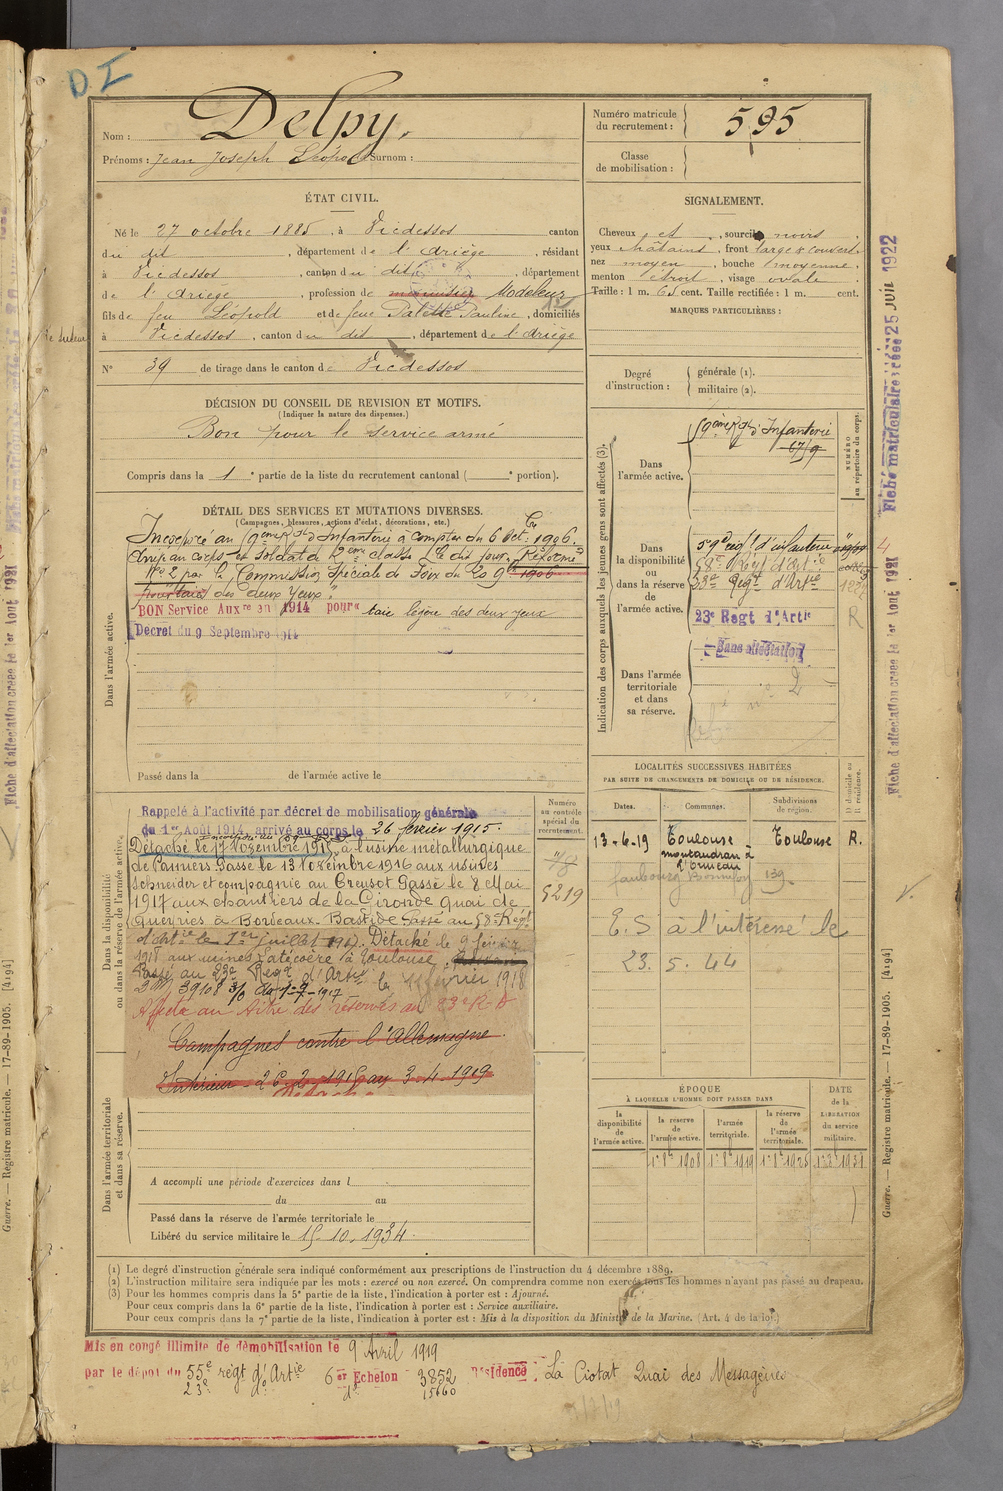 D I
Nom : Delpy.
Prénoms : Jean Joseph Léopold Surnom :
Numéro matricule du recrutement : 595
Classe de mobilisation :
ÉTAT CIVIL.
Né le 27 octobre 1885, à Vicdessos canton
du dit, département de l'Ariège, résidant
à Vicdessos, canton du dit, département
de l'Ariège, profession de Modeleur
fils de feu Léopold et de feue Palette Pauline, domiciliés
à Vicdessos, canton du dit, département de l'Ariège
N° 39 de tirage dans le canton de Vicdessos
SIGNALEMENT.
Cheveux et, sourcils noirs
yeux châtains, front large & couvert
nez moyen, bouche moyenne,
menton étroit, visage ovale
Taille : 1 m. 65 cent. Taille rectifiée : 1 m. cent.
MARQUES PARTICULIÈRES :
Degré d'instruction : générale (1).
militaire (2).
DÉCISION DU CONSEIL DE REVISION ET MOTIFS.
(Indiquer la nature des dispenses.)
Bon pour le service armé
Compris dans la 1e partie de la liste du recrutement cantonal ( e portion).
DÉTAIL DES SERVICES ET MUTATIONS DIVERSES.
(Campagnes, blessures, actions d'éclat, décorations, etc.)
Dans l'armée active.
Incorporé au 59ème Rgt d'Infanterie à compter du 6 Oct. 1906.
Arrivé au corps et soldat de 2ème classe le dit jour. Réformé
N° 2 par la Commission Spéciale de Foix du 20 9bre 1906
pour taies des deux yeux.
BON Service Auxre en 1914 pour taie légère des deux yeux
Décret du 9 Septembre 1914
Passé dans la de l'armée active le
Indication des corps auxquels les jeunes gens sont affectés (3).
NUMÉRO au répertoire du corps.
Dans l'armée active.
59ème Rgt d'Infanterie
Dans la disponibilité ou dans la réserve de l'armée active.
59e régt d'infanterie
58e Régt d'Artie
23e Régt d'Artie
23e Regt d'Artie R
Sans affectation
Dans l'armée territoriale et dans sa réserve.
Dans la disponibilité ou dans la réserve de l'armée active.
Rappelé à l'activité par décret de mobilisation générale
du 1er Août 1914, arrivé au corps le 26 février 1915.
Détaché le 17 Novembre 1915, à l'usine métallurgique
de Pamiers Passé le 13 Novembre 1916 aux usines
Schneider et compagnie au Creusot Passé le 8 Mai
1917 aux chantiers de la Gironde quai de
Queyries à Bordeaux-Bastide Passé au 58e Régt
d'Artie le 1er juillet 1917. Détaché le 9 février
1918 aux usines Latécoère à Toulouse
Passé au 23e Régt d'Artie le 11 février 1918
D.M. 39108 3/8 du 1-9-1917
Affecté au titre des réserves au 23e R.A
Campagnes contre l'Allemagne
Intérieur 26-2-1915 au 3-4-1919
Numéro au contrôle spécial du recrutement.
5219
LOCALITÉS SUCCESSIVES HABITÉES
PAR SUITE DE CHANGEMENTS DE DOMICILE OU DE RÉSIDENCE.
Dates. Communes. Subdivisions de région. D. domicile ou R. résidence.
13-6-19 Toulouse Toulouse R.
montaudran à
l'Ormeau
faubourg Bonnefoy 139
E.S à l'intéressé le
23. 5. 44
Dans l'armée territoriale et dans sa réserve.
A accompli une période d'exercices dans l
du au
Passé dans la réserve de l'armée territoriale le
Libéré du service militaire le 15-10-1934.
ÉPOQUE
À LAQUELLE L'HOMME DOIT PASSER DANS
la disponibilité de l'armée active. la réserve de l'armée active. l'armée territoriale. la réserve de l'armée territoriale. DATE de la LIBÉRATION du service militaire.
1er 8bre 1908 1er 8bre 1919 1er 8bre 1925 1er 8bre 1931
(1) Le degré d'instruction générale sera indiqué conformément aux prescriptions de l'instruction du 4 décembre 1889.
(2) L'instruction militaire sera indiquée par les mots : exercé ou non exercé. On comprendra comme non exercés tous les hommes n'ayant pas passé au drapeau.
(3) Pour les hommes compris dans la 5e partie de la liste, l'indication à porter est : Ajourné.
Pour ceux compris dans la 6e partie de la liste, l'indication à porter est : Service auxiliaire.
Pour ceux compris dans la 7e partie de la liste, l'indication à porter est : Mis à la disposition du Ministre de la Marine. (Art. 4 de la loi.)
Mis en congé illimité de démobilisation le 9 Avril 1919
par le dépôt du 55e régt d'Artie 6er Echelon 3852 Résidence : La Ciotat Quai des Messageries
23e do 15660
Fiche matriculaire créée 25 JUIL 1922
Fiche d'affectation créée le 1er Aout 1921
Guerre. — Registre matricule. — 17-89-1905. [4194]